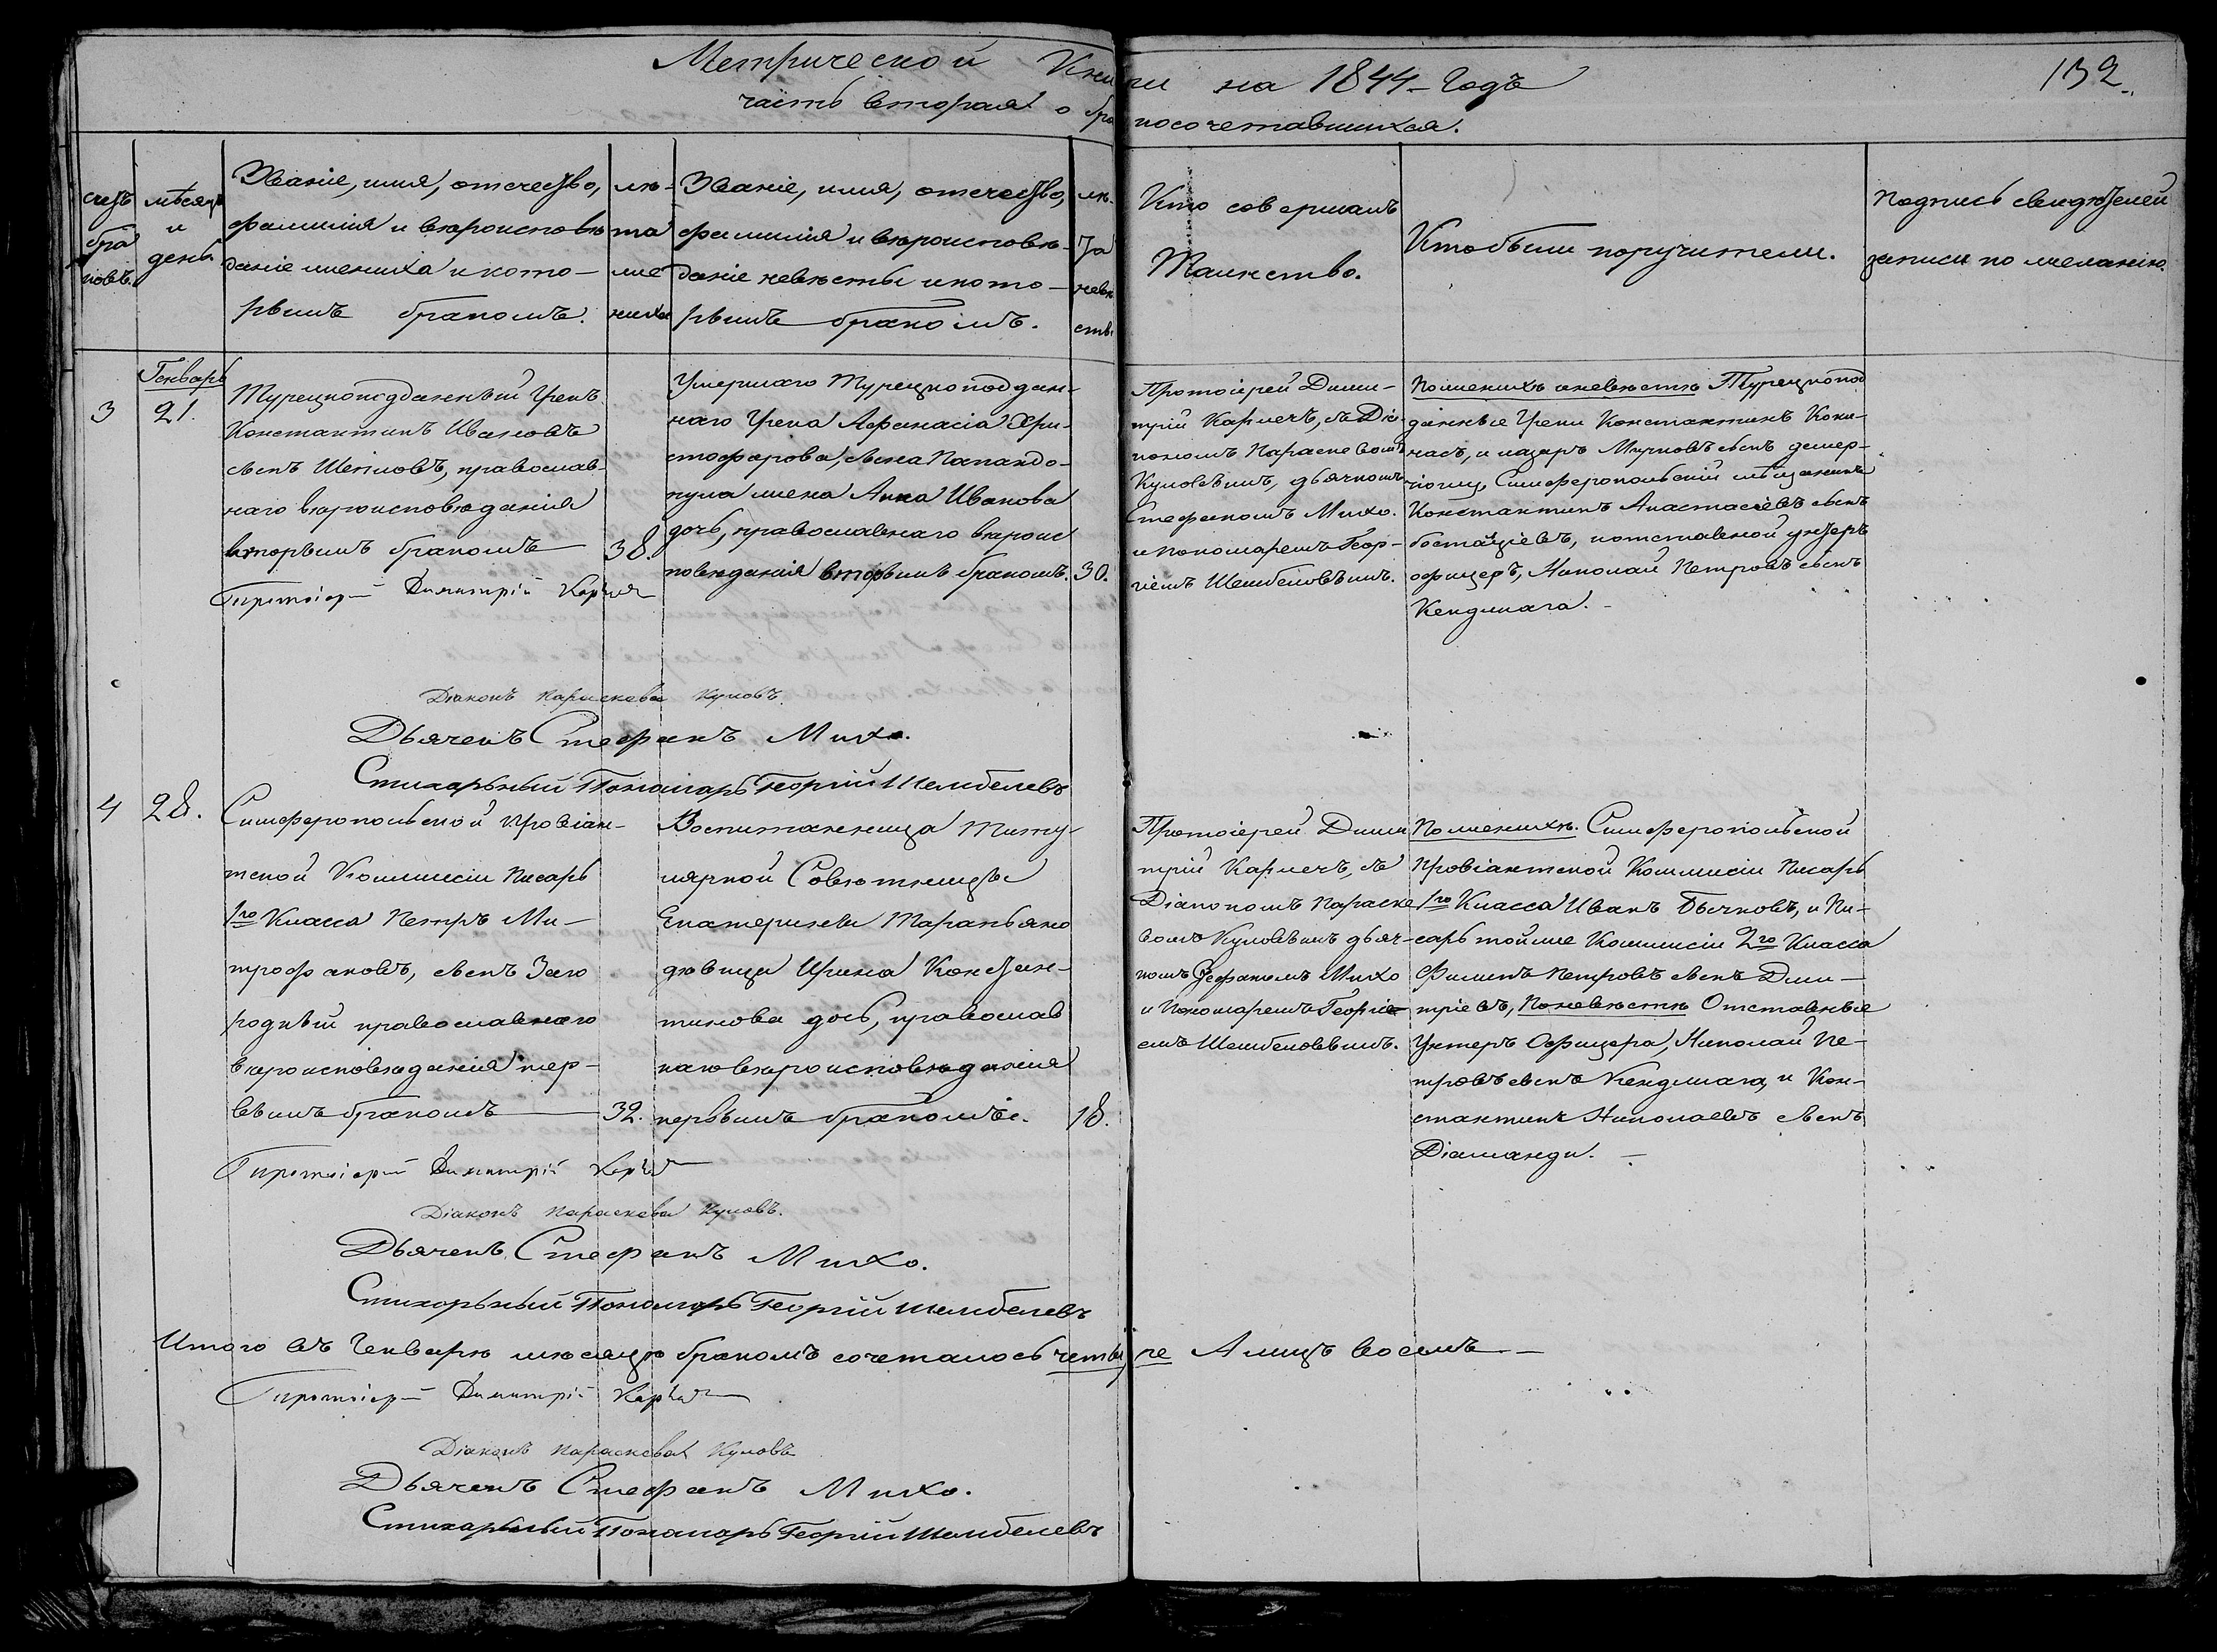 Метрической Книги на 1844-Годъ
132.
часть вторая о бракосочетавшихся.
счетъ браковъ.
мѣсяцъ и день
Званіе, имя, отечество,
фамилія и вѣроисповѣ
даніе жениха и кото-
рымъ бракомъ.
лѣ-
та
же
ниха
Званіе, имя, отечество,
фамилія и вѣроисповѣ-
даніе невѣсты и кото-
рымъ бракомъ.
лѣ-
та
невѣ
сты
Кто совершалъ
Таинство.
Кто были поручители.
Подпись свидѣтелей
записи по желанію.
3
Генварь
21.
Турецкоподданный Грекъ
Константинъ Ивановъ
сынъ православ-
наго вѣроисповѣданія
вторымъ бракомъ
38.
Умершаго Турецкоподдан-
наго Грека Афанасія Хри-
стофорова, сына Папандо-
пула жена Анна Иванова
дочь, православнаго вѣроис
повѣданія вторымъ бракомъ.
30.
Протоіерей Дими-
трій съ Діа-
кономъ Параскевою
Куловымъ, дьячкомъ
Стефаномъ Михо.
и пономаремъ Геор-
гіемъ Шембеловымъ.
По женихѣ и невѣстѣ Турецкопод
данные Греки Константинъ
и Лазарь сынъ
Симферопольскій мѣщанинъ
Константинъ Анастасіевъ сынъ
и отставной унтеръ
офицеръ, Николай Петровъ сынъ
Кенджага.-
Протоіерей Димитрій
Діаконъ Параскева Куловъ.
Дьячекъ Стефанъ Михо.
Стихарьный Пономарь Георгій Шембелевъ
4
28.
Симферопольской Провіан-
тской Коммисіи Писарь
1го Класса Петръ Ми-
трофановъ, сынъ Заго
родный православнаго
вѣроисповѣданія пер-
вымъ бракомъ
32.
Воспитанница Титу-
лярной Совѣтницы
Екатерины
дѣвица Ирина Констан-
тинова дочь, православ
наго вѣроисповѣданія
первымъ бракомъ.
18.
Протоіерей Дими
трій съ
Діакономъ Параске
вою Куловымъ дьяч-
комъ Стефаномъ Михо
и Пономаремъ Георгіе
емъ Шембеловымъ.
По женихѣ. Симферопольской
Провіантской Коммисіи Писарь
1го Класса Иванъ Бычковъ, и Пи-
сарь той же Коммисіи 2го Класса
Филипъ Петровъ сынъ Дми-
тріевъ, По невѣстѣ Отставные
Унтеръ Офицера, Николай Пе-
тровъ сынъ Кенджага, и Кон-
стантинъ Николаевъ сынъ
Діаманди. -
Протоіерей Димитрій
Діаконъ Параскева Куловъ.
Дьячекъ Стефанъ Михо.
Стихарьный Пономарь Георгій Шембелевъ
Итого въ Генварѣ мѣсяцѣ бракомъ сочеталось четыре А лицъ восемь -
Протоіерей Димитрій
Діаконъ Параскева Куловъ
Дьячекъ Стефанъ Михо.
Стихарьный Пономарь Георгій Шембелевъ